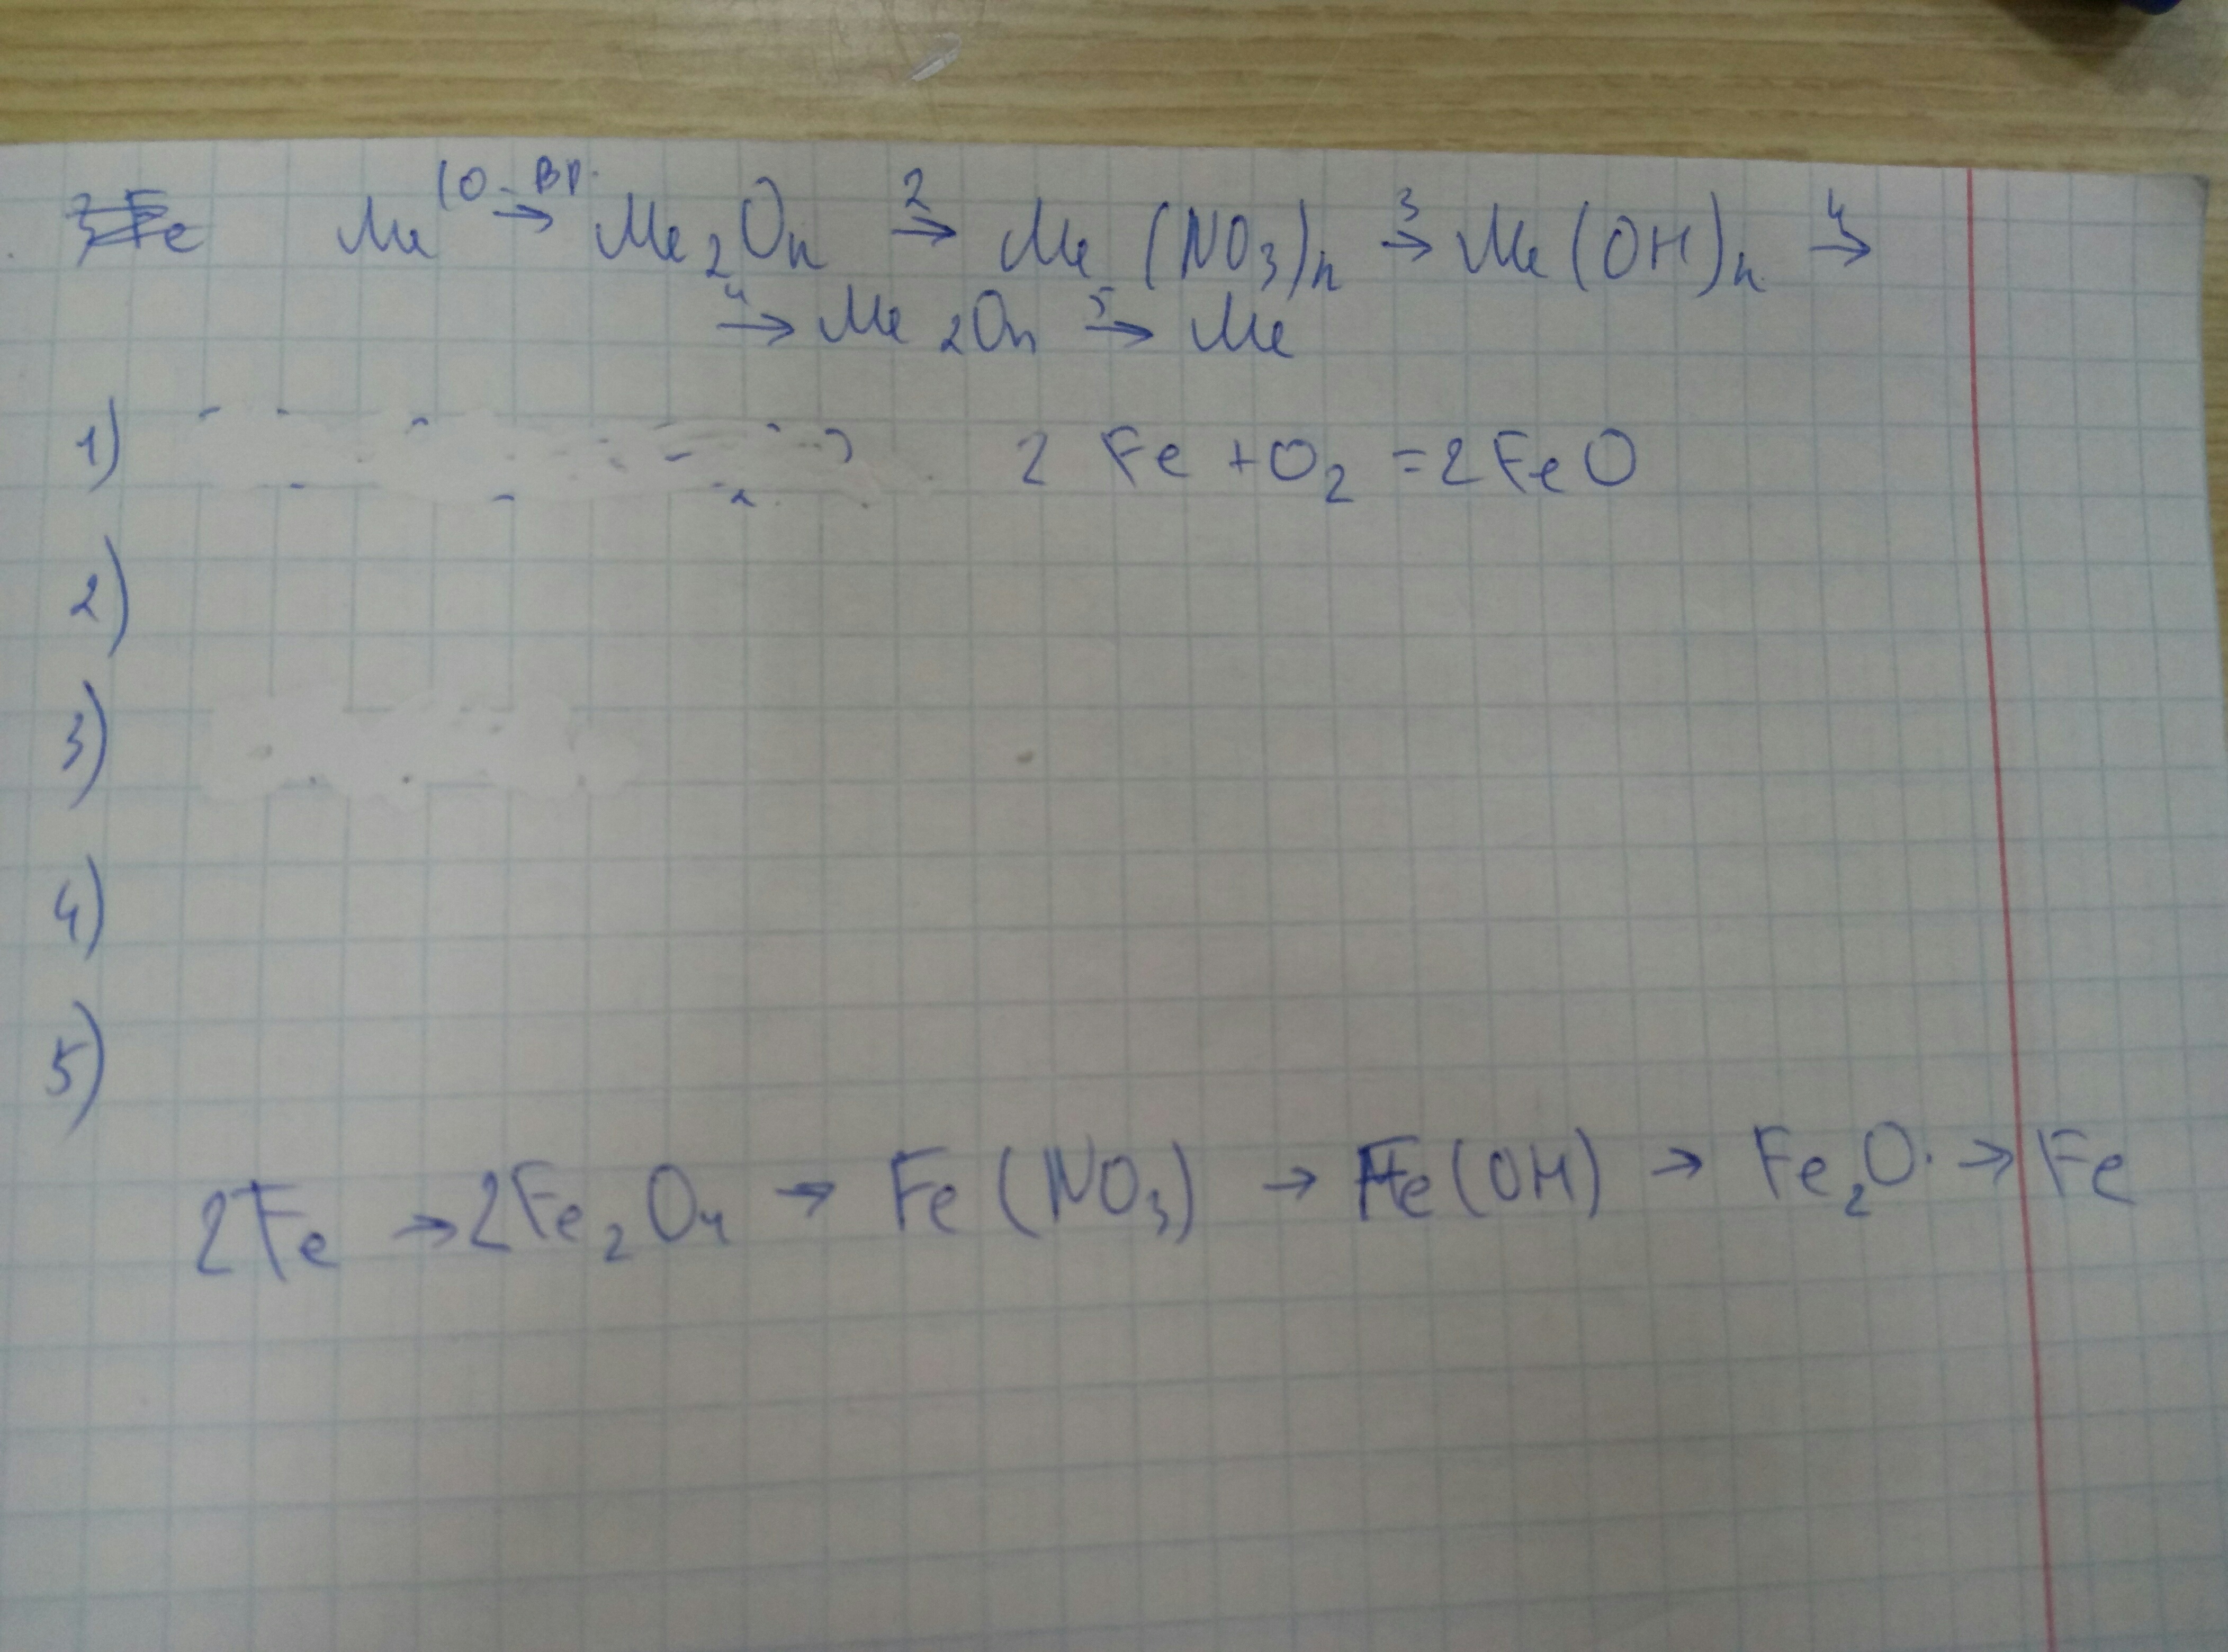 Me 1 О-ВР→ Me₂Oₙ 2→ Me (NO₃)ₙ 3→ Me (OH)ₙ 4→
4→ Me ₂Oₙ 5→ Me
1) 2 Fe + O₂ = 2 FeO
2)
3)
4)
5)
2Fe → 2Fe₂O₄ → Fe (NO₃) → Fe (OH) → Fe₂O. → Fe